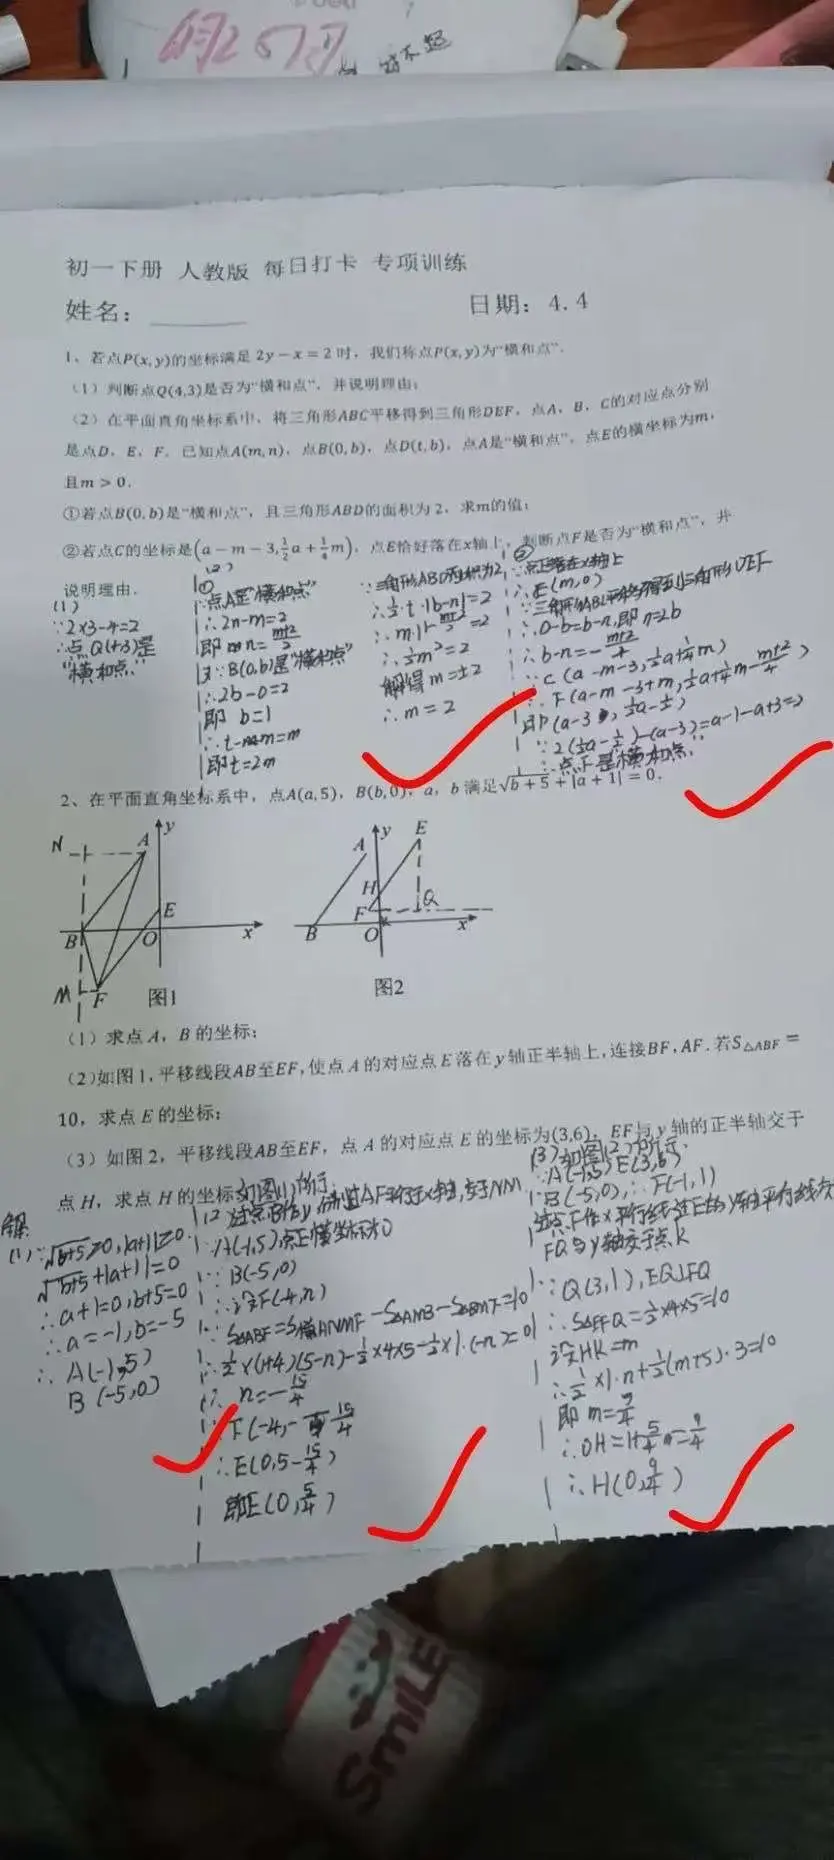 对不起
初一下册 人教版 每日打卡 专项训练
姓名：______ 日期：4.4
1、若点P(x,y)的坐标满足2y−x=2时，我们称点P(x,y)为“横和点”．
（1）判断点Q(4,3)是否为“横和点”，并说明理由；
（2）在平面直角坐标系中，将三角形ABC平移得到三角形DEF，点A，B，C的对应点分别
是点D，E，F．已知点A(m,n)，点B(0,b)，点D(t,b)，点A是“横和点”，点E的横坐标为m，
且m＞0．
①若点B(0,b)是“横和点”，且三角形ABD的面积为2，求m的值；
②若点C的坐标是(a−m−3,½a+¼m)，点E恰好落在x轴上，判断点F是否为“横和点”，并
说明理由．
(1)
∵2×3-4=2
∴点Q(4,3)是
“横和点”
(2)
①
∵点A是“横和点”
∴2n-m=2
即 n=(m+2)/2
又∵B(0,b)是“横和点”
∴2b-0=2
即 b=1
即t=2m
∵三角形ABD面积为2
∴½·t·|b-n|=2
∴½m²=2
解得 m=±2
∴m=2
②
∵点E落在x轴上
∴E(m,0)
∵三角形ABC平移得到三角形DEF
∴0-b=b-n,即 n=2b
∴b-n=-(m+2)/4
∵C(a-m-3,½a+¼m)
∴F(a-m-3+m,½a+¼m-(m+2)/4)
即F(a-3,½a-½)
∵2(½a-½)-(a-3)=a-1-a+3=2
∴点F是“横和点”
2、在平面直角坐标系中，点A(a,5)，B(b,0)，a，b满足√(b+5)+|a+1|=0．
N A y E
B O x
M F 图1
A y E
H
F Q
B O x
图2
（1）求点A，B的坐标；
（2）如图1，平移线段AB至EF，使点A的对应点E落在y轴正半轴上，连接BF，AF．若S△ABF=
10，求点E的坐标；
（3）如图2，平移线段AB至EF，点A的对应点E的坐标为(3,6)，EF与y轴的正半轴交于
点H，求点H的坐标．
解:
(1)∵√(b+5)≥0,|a+1|≥0
√(b+5)+|a+1|=0
∴a+1=0,b+5=0
∴a=-1,b=-5
∴A(-1,5)
B(-5,0)
(2)如图(1)所示
∵A(-1,5),点E横坐标为0
∵B(-5,0)
∴设F(-4,n)
∵S△ABF=S梯ANMF-S△ANB-S△BMF=10
∴½×(1+4)(5-n)-½×4×5-½×1·(-n)=10
∴n=-15/4
∴F(-4,-15/4)
∴E(0,5-15/4)
即E(0,5/4)
(3)如图(2)所示
∵A(-1,5)E(3,6)
∵B(-5,0),∴F(-1,1)
FQ与y轴交于点K
∵Q(3,1),EQ⊥FQ
∴S△EFQ=½×4×5=10
设HK=m
∴½×1·n+½(m+5)·3=10
∴OH=1+5/4=9/4
∴H(0,9/4)
SMILE